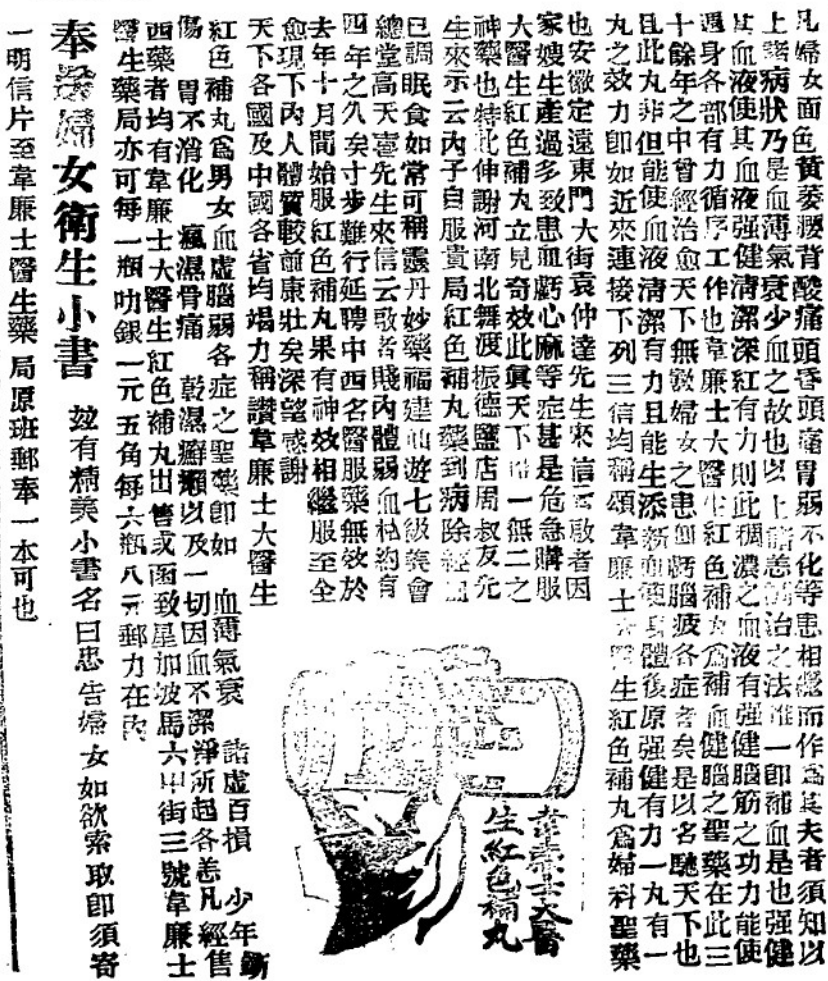 凡婦女面色黃萎腰背酸痛頭昏頭痛胃弱不化等患相繼而作爲其夫者須知以
上諸病狀乃是血薄氣衰少血之故也以上諸恙治之法惟一即補血是也强健
其血液使其血液强健清潔深紅有力則此稠濃之血液有强健腦筋之功力能使
週身各部有力循序工作也韋廉士大醫生紅色補丸爲補血健腦之聖藥在此三
十餘年之中曾經治愈天下無數婦女之患血虧腦疲各症者矣是以名馳天下也
且此丸非但能使血液清潔有力且能生添新血使身體復原强健有力一丸有一
丸之效力即如近來連接下列三信均稱頌韋廉士大醫生紅色補丸爲婦科聖藥
也安徽定遠東門大街袁仲達先生來信云敝者因
家嫂生產過多致患血虧心麻等症甚是危急購服
大醫生紅色補丸立見奇效此眞天下一無二之
神藥也特此伸謝河南北舞渡振德鹽店周叔友先
生來示云內子自服貴局紅色補丸藥到病除經
已調眠食如常可稱靈丹妙藥福建仙游七級義會
總堂高天臺先生來信云敝者賤內體弱血枯約有
四年之久矣寸步難行延聘中西名醫服藥無效於
去年十月間始服紅色補丸果有神效相繼服至全
愈現下內人體質較前康壯矣深望感謝
天下各國及中國各省均竭力稱讚韋廉士大醫生
紅色補丸爲男女血虛腦弱各症之聖藥即如 血薄氣衰 諸虛百損 少年斲
傷 胃不消化 瘋濕骨痛 乾濕癬癩以及一切因血不潔淨所起各恙凡經售
西藥者均有韋廉士大醫生紅色補丸出售或函致星加坡馬六甲街三號韋廉士
醫生藥局亦可每一瓶叻銀一元五角每六瓶八元郵力在內
奉送婦女衛生小書 玆有精美小書名曰忠告婦女如欲索取即須寄
一明信片至韋廉士醫生藥局原班郵奉一本可也
韋廉士大醫
生紅色補丸